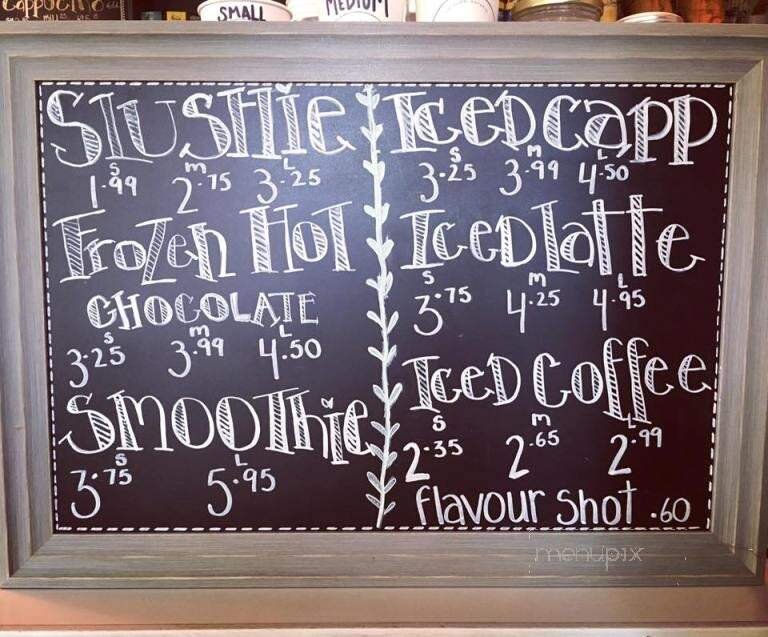 Cappucino
SMALL
MEDIUM
SLUSHIE
S M L
1.99 2.75 3.25
Frozen Hot
CHOCOLATE
S M L
3.25 3.99 4.50
Smoothie
S L
3.75 5.95
Iced Capp
S M L
3.25 3.99 4.50
Iced Latte
S M L
3.75 4.25 4.95
Iced Coffee
S M L
2.35 2.65 2.99
flavour shot .60
menupix